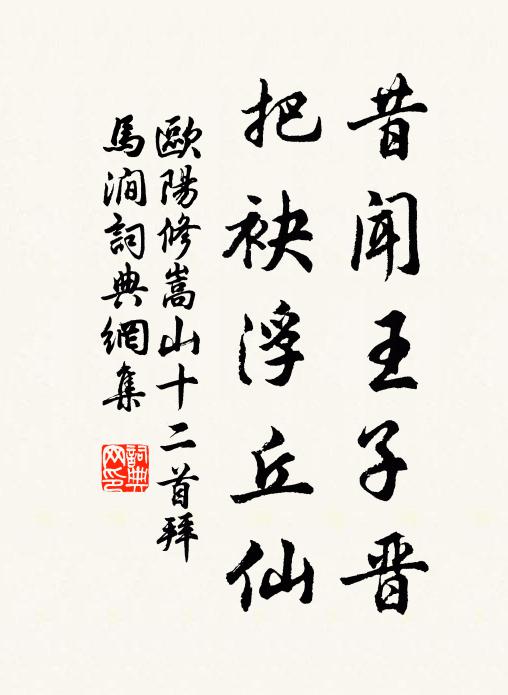 昔闻王子晋
把袂浮丘仙
歐陽修嵩山十二首拜
馬澗詞典網集
詞典网印